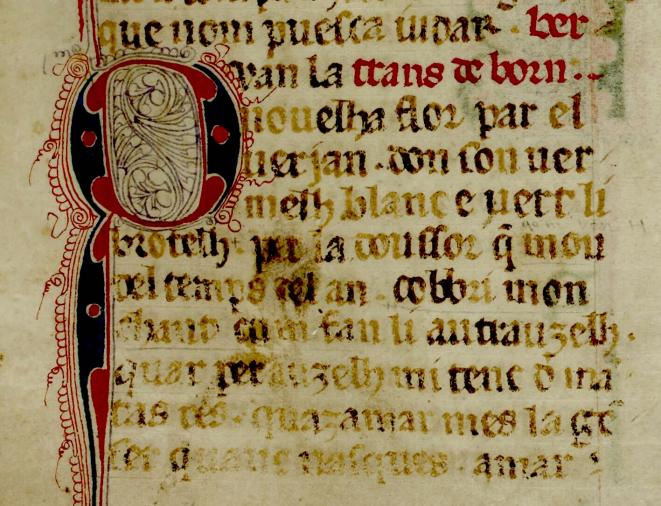 que nom puesca uidar· ber
Quan la trans de born·
nouelha flor par el
uerjan · don son uer
melh blanc e uert li
brotelh· per la doussor q̃ mou
del temps del an · cobbri mon
chant com fan li autrauzelh·
quar per auzelh mi tenc d ma
tas res· quazamar mes la gẽ
ser quanc nasques · amar